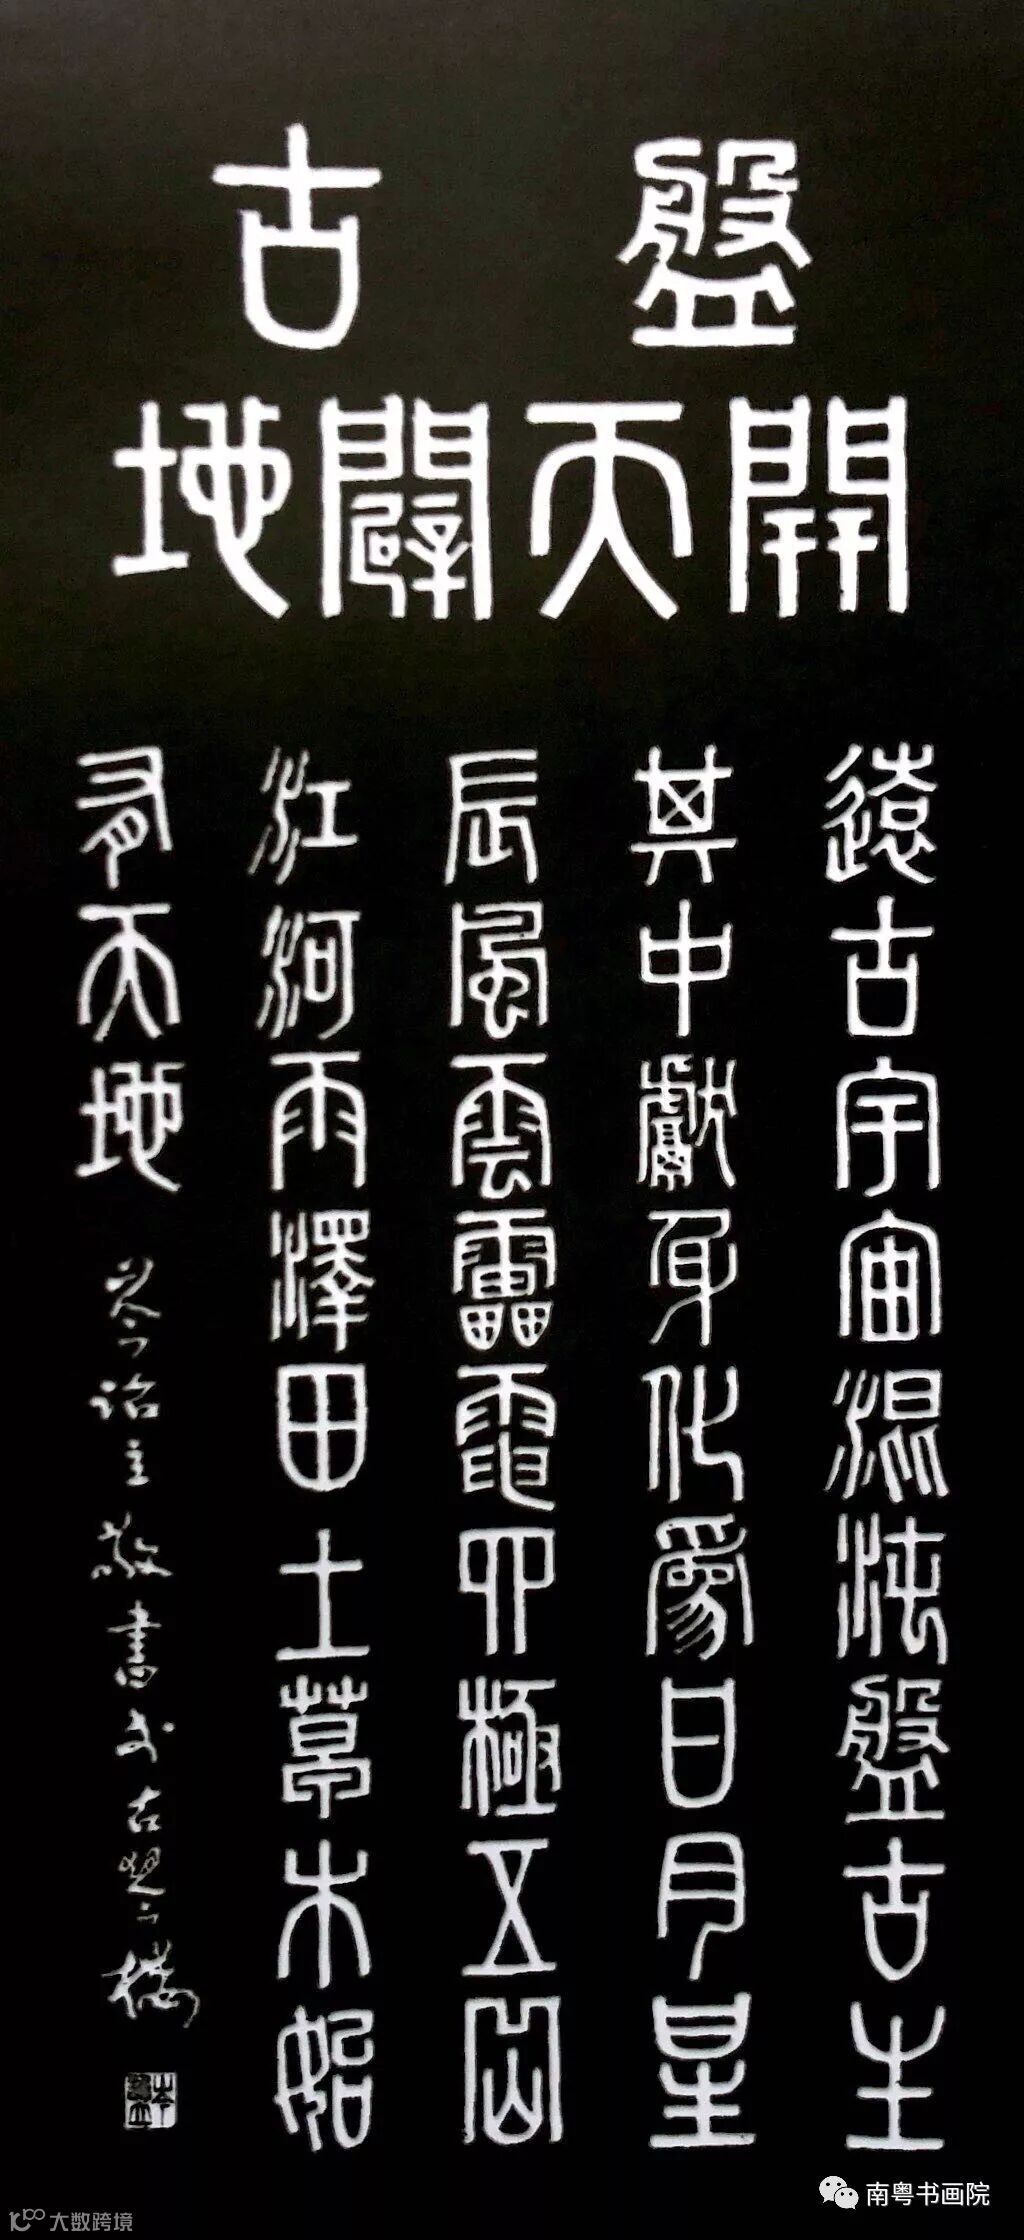 盤古
開天闢地
遠古宇宙混沌盤古生
其中獻身化爲日月星
辰風雲靁電四極五山
江河雨澤田土草木始
有天地
主敬書於古樓
南粤书画院
大数跨境